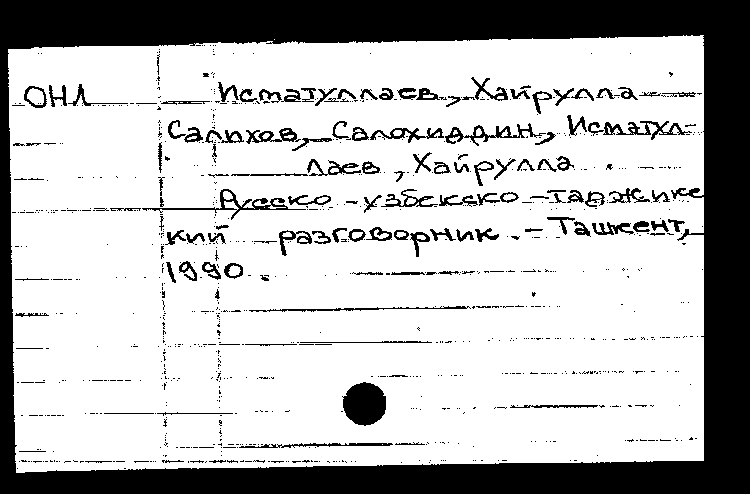 ОНЛ Исматуллаев, Хайрулла
Салихов, Салохиддин, Исматул-
лаев, Хайрулла.
Русско-узбекско-таджикс
кий разговорник. - Ташкент,
1990.